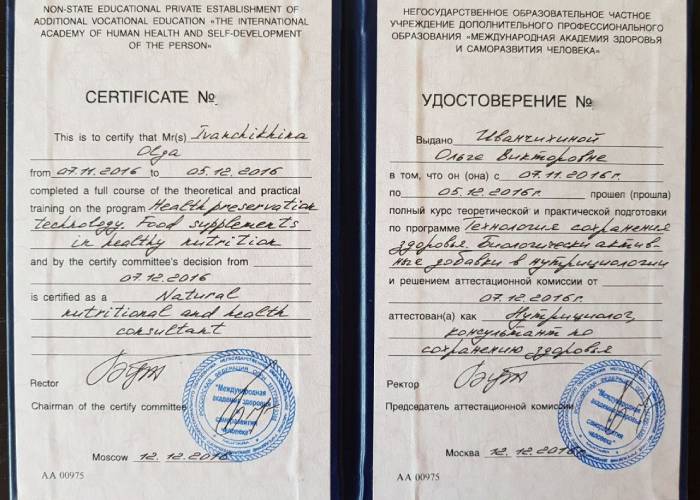 NON-STATE EDUCATIONAL PRIVATE ESTABLISMENT OF
ADDITIONAL VOCATIONAL EDUCATION «THE INTERNATIONAL
ACADEMY OF HUMAN HEALTH AND SELF-DEVELOPMENT
OF THE PERSON»
CERTIFICATE №
This is to certify that Mr(s) Ivanchikhina
Olga
from 07.11.2016 to 05.12.2016
completed a full course of the theoretical and practical
training on the program Health preservation
technology. Food supplements
in healthy nutrition
and by the certify committee's decision from
07.12.2016
is certified as a Natural
nutritional and health
consultant
Rector
Chairman of the certify committee
"Международная
академия здоровья
саморазвития
человека"
Moscow 12.12.2016
АА 00975
НЕГОСУДАРСТВЕННОЕ ОБРАЗОВАТЕЛЬНОЕ ЧАСТНОЕ
УЧРЕЖДЕНИЕ ДОПОЛНИТЕЛЬНОГО ПРОФЕССИОНАЛЬНОГО
ОБРАЗОВАНИЯ «МЕЖДУНАРОДНАЯ АКАДЕМИЯ ЗДОРОВЬЯ
И САМОРАЗВИТИЯ ЧЕЛОВЕКА»
УДОСТОВЕРЕНИЕ №
Выдано Иванчихиной
Ольге Викторовне
в том, что он (она) с 07.11.2016г.
по 05.12.2016г. прошел (прошла)
полный курс теоретической и практической подготовки
по программе Технология сохранения
здоровья. Биологически актив-
ные добавки в нутрициологии
и решением аттестационной комиссии от
07.12.2016г.
аттестован(а) как Нутрициолог,
консультант по
сохранению здоровья
Ректор
Председатель аттестационной комиссии
"Международная
академия здоровья
саморазвития
человека"
Москва 12.12.2016г.
АА 00975